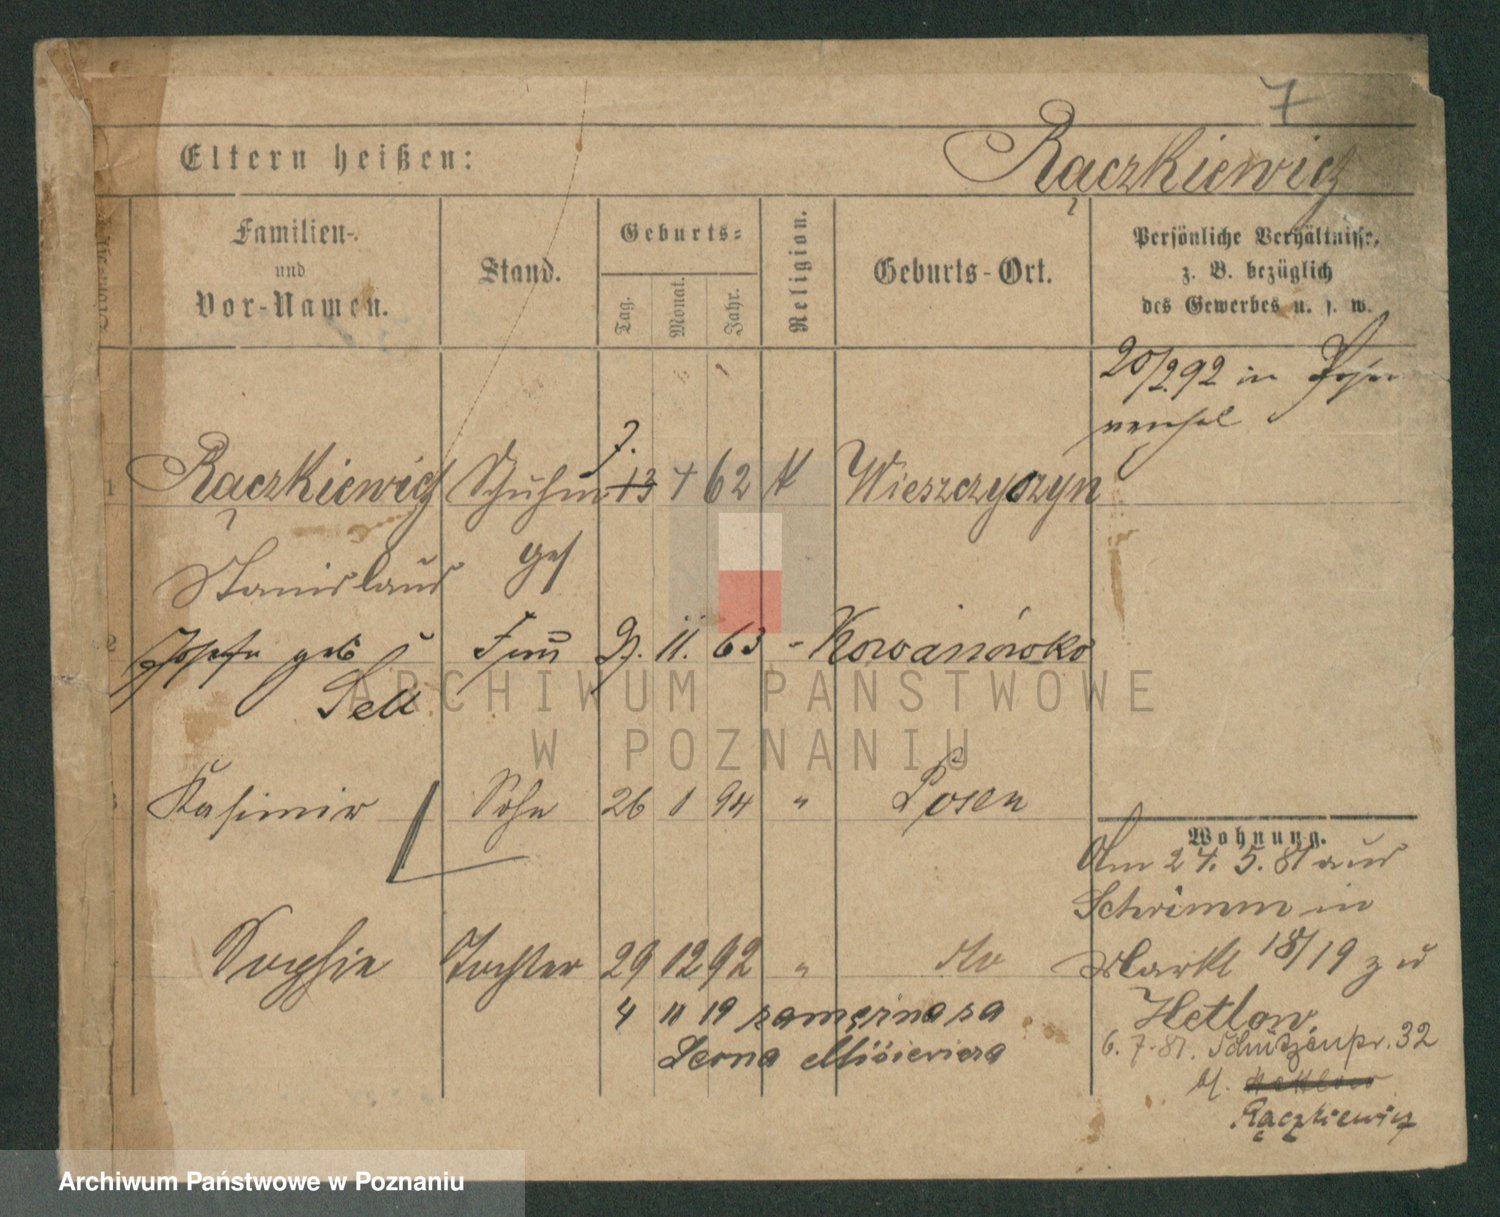 7
Eltern heißen:
Rączkiewicz
Familien-
und
Vor-Namen.
Stand.
Geburts-
Tag.
Monat.
Jahr.
Religion.
Geburts-Ort.
Persönliche Verhältnisse,
z. B. bezüglich
des Gewerbes u. s. w.
20/2.92 in Posen
7.
1 Rączkiewicz Schuhm 13 4 62 K Wieszczyczyn
Stanislaus ges
2 Josefa geb Frau 9. 11. 63 - Kowanówko
Sell
Kasimir Sohn 26 1 94 " Posen
Wohnung.
Am 24. 5. 81 aus
Schrimm in
Sophie Tochter 29 12 92 " do
Markt 18/19 zu
Hetlow
4 11 19 zamężna za
6. 7. 81. Schützenstr. 32
Leona
bf.
Rączkiewicz
ARCHIWUM PAŃSTWOWE
W POZNANIU
Archiwum Państwowe w Poznaniu